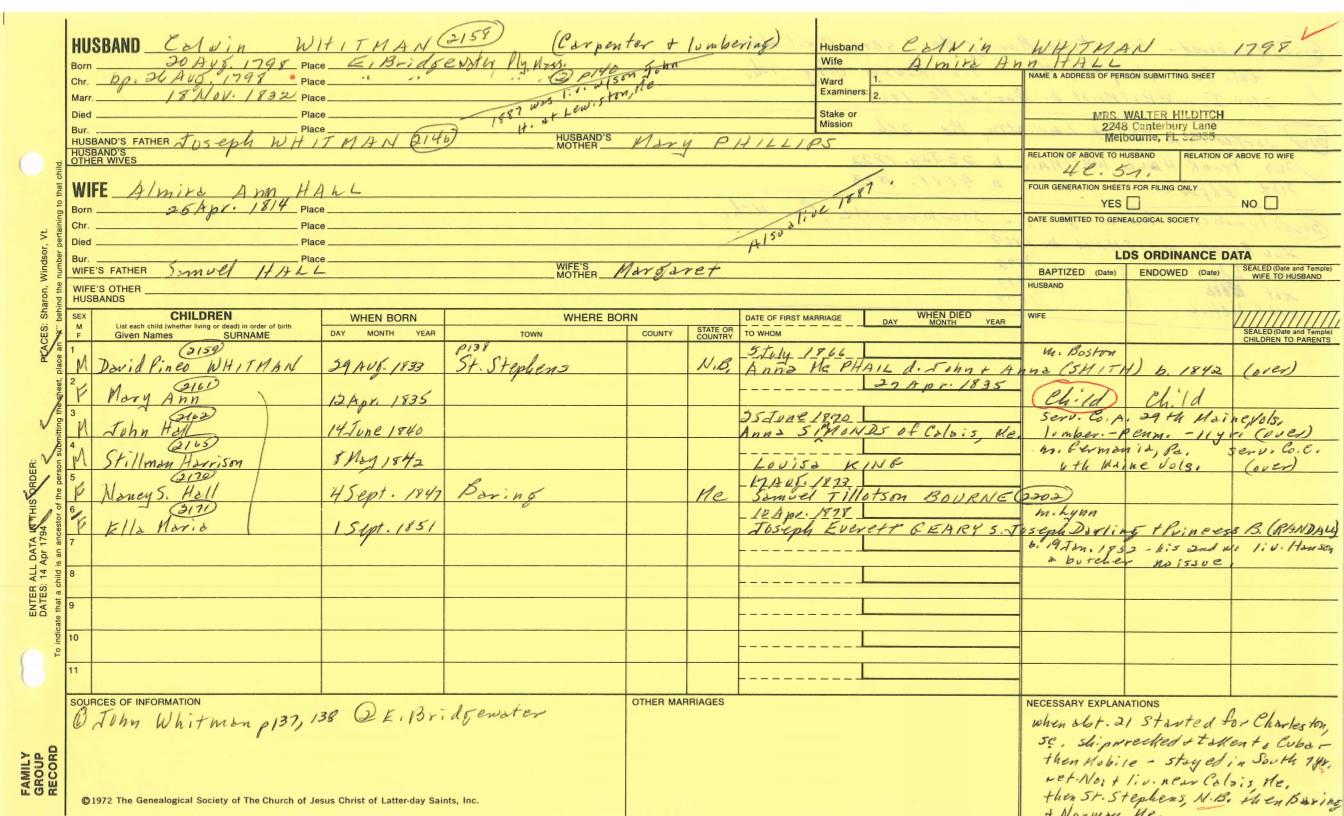 HUSBAND Calvin WHITMAN 2158 (Carpenter + lumbering)
Born 20 Aug. 1798 Place E. Bridgewater Ply. Mass.
Chr. bp. 26 Aug. 1798 Place " " " ② p140
Marr. 18 Nov. 1832 Place
1887 was liv. w/son John
H. at Lewiston, Me
Died Place
Bur. Place
HUSBAND'S FATHER Joseph WHITMAN 2146 HUSBAND'S MOTHER Mary PHILLIPS
HUSBAND'S OTHER WIVES
WIFE Almira Ann HALL
Born 25 Apr. 1814 Place
Chr. Place
Died Place
Also alive 1887.
Bur. Place
WIFE'S FATHER Samuel HALL WIFE'S MOTHER Margaret
WIFE'S OTHER HUSBANDS
Husband Calvin WHITMAN 1798
Wife Almira Ann HALL
Ward Examiners: 1.
2.
Stake or Mission
NAME & ADDRESS OF PERSON SUBMITTING SHEET
MRS. WALTER HILDITCH
2248 Canterbury Lane
Melbourne, FL 32935
RELATION OF ABOVE TO HUSBAND RELATION OF ABOVE TO WIFE
4c. 5r.
FOUR GENERATION SHEETS FOR FILING ONLY
YES NO
DATE SUBMITTED TO GENEALOGICAL SOCIETY
LDS ORDINANCE DATA
BAPTIZED (Date) ENDOWED (Date) SEALED (Date and Temple) WIFE TO HUSBAND
HUSBAND
WIFE
SEALED (Date and Temple) CHILDREN TO PARENTS
SEX M F CHILDREN WHEN BORN WHERE BORN DATE OF FIRST MARRIAGE WHEN DIED
List each child (whether living or dead) in order of birth
Given Names SURNAME DAY MONTH YEAR TOWN COUNTY STATE OR COUNTRY TO WHOM DAY MONTH YEAR
2159 p138 5 July 1866 m. Boston
1 M David Pineo WHITMAN 29 Aug. 1833 St. Stephens N.B. Anna McPHAIL d. John + Anna (SMITH) b. 1842 (over)
2161 27 Apr. 1835
2 F Mary Ann 12 Apr. 1835 Child Child
2162 25 June 1870 Serv. Co. A. 29th Maine Vols.
3 M John Hall 14 June 1840 Anna SIMONDS of Calais, Me. lumber.-Penn. -11 yr (over)
2165 m. Germania, Pa. serv. Co. E.
4 M Stillman Harrison 8 May 1842 Louisa KING 6th Maine Vols. (over)
2170 17 Aug. 1873
5 F Nancy S. Hall 4 Sept. 1847 Baring Me Samuel Tillotson BOURNE 2202
2171 10 Apr. 1878 m. Lynn
6 F Ella Maria 1 Sept. 1851 Joseph Everett GEARY s. Joseph Darling + Princess B. (RANDALL)
7 b. 19 Jan. 1852 - his 2nd m. liv. Hanson
a butcher no issue.
8
9
10
11
SOURCES OF INFORMATION
① John Whitman p137, 138 ② E. Bridgewater
OTHER MARRIAGES
NECESSARY EXPLANATIONS
when abt. 21 started for Charleston,
SC. shipwrecked + taken to Cuba -
then Mobile - stayed in South 7 yr.
ret. No. + liv. near Calais, Me.
then St. Stephens, N.B. then Baring
©1972 The Genealogical Society of The Church of Jesus Christ of Latter-day Saints, Inc.
FAMILY GROUP RECORD
ENTER ALL DATA IN THIS ORDER:
DATES: 14 Apr 1794
PLACES: Sharon, Windsor, Vt.
To indicate that a child is an ancestor of the person submitting the sheet, place an "X" behind the number pertaining to that child.